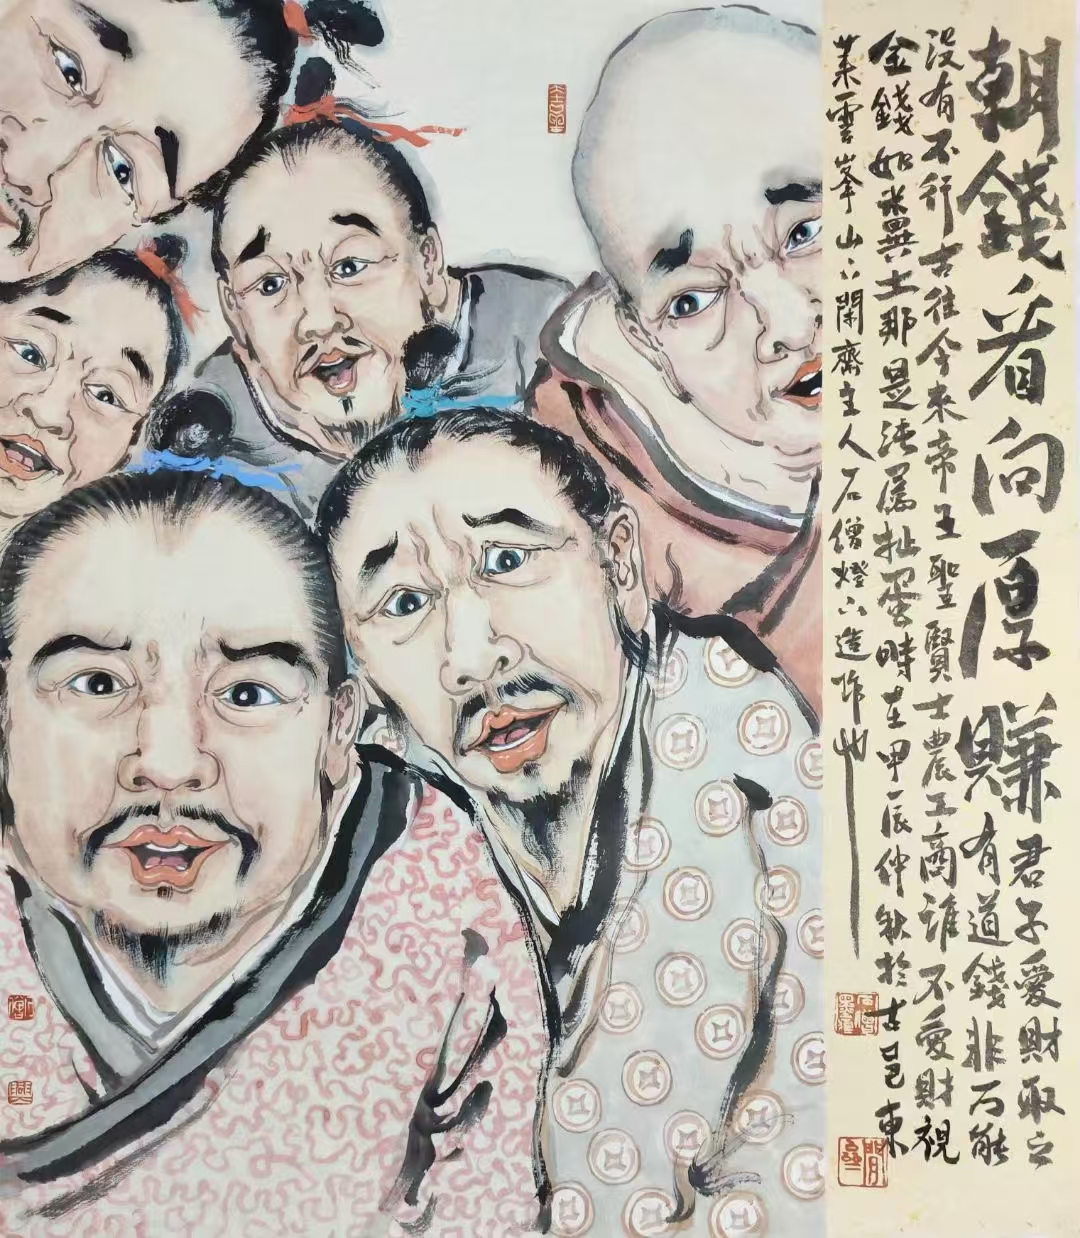 朝錢看向厚賺
君子愛財取之
有道錢非万能
没有不行古往今來帝王聖賢士農工商誰不愛財視
金錢如糞土那是純屬扯蛋時在甲辰仲秋於古邑東
萊雲峯山下閑齋主人石僧燈下造作也